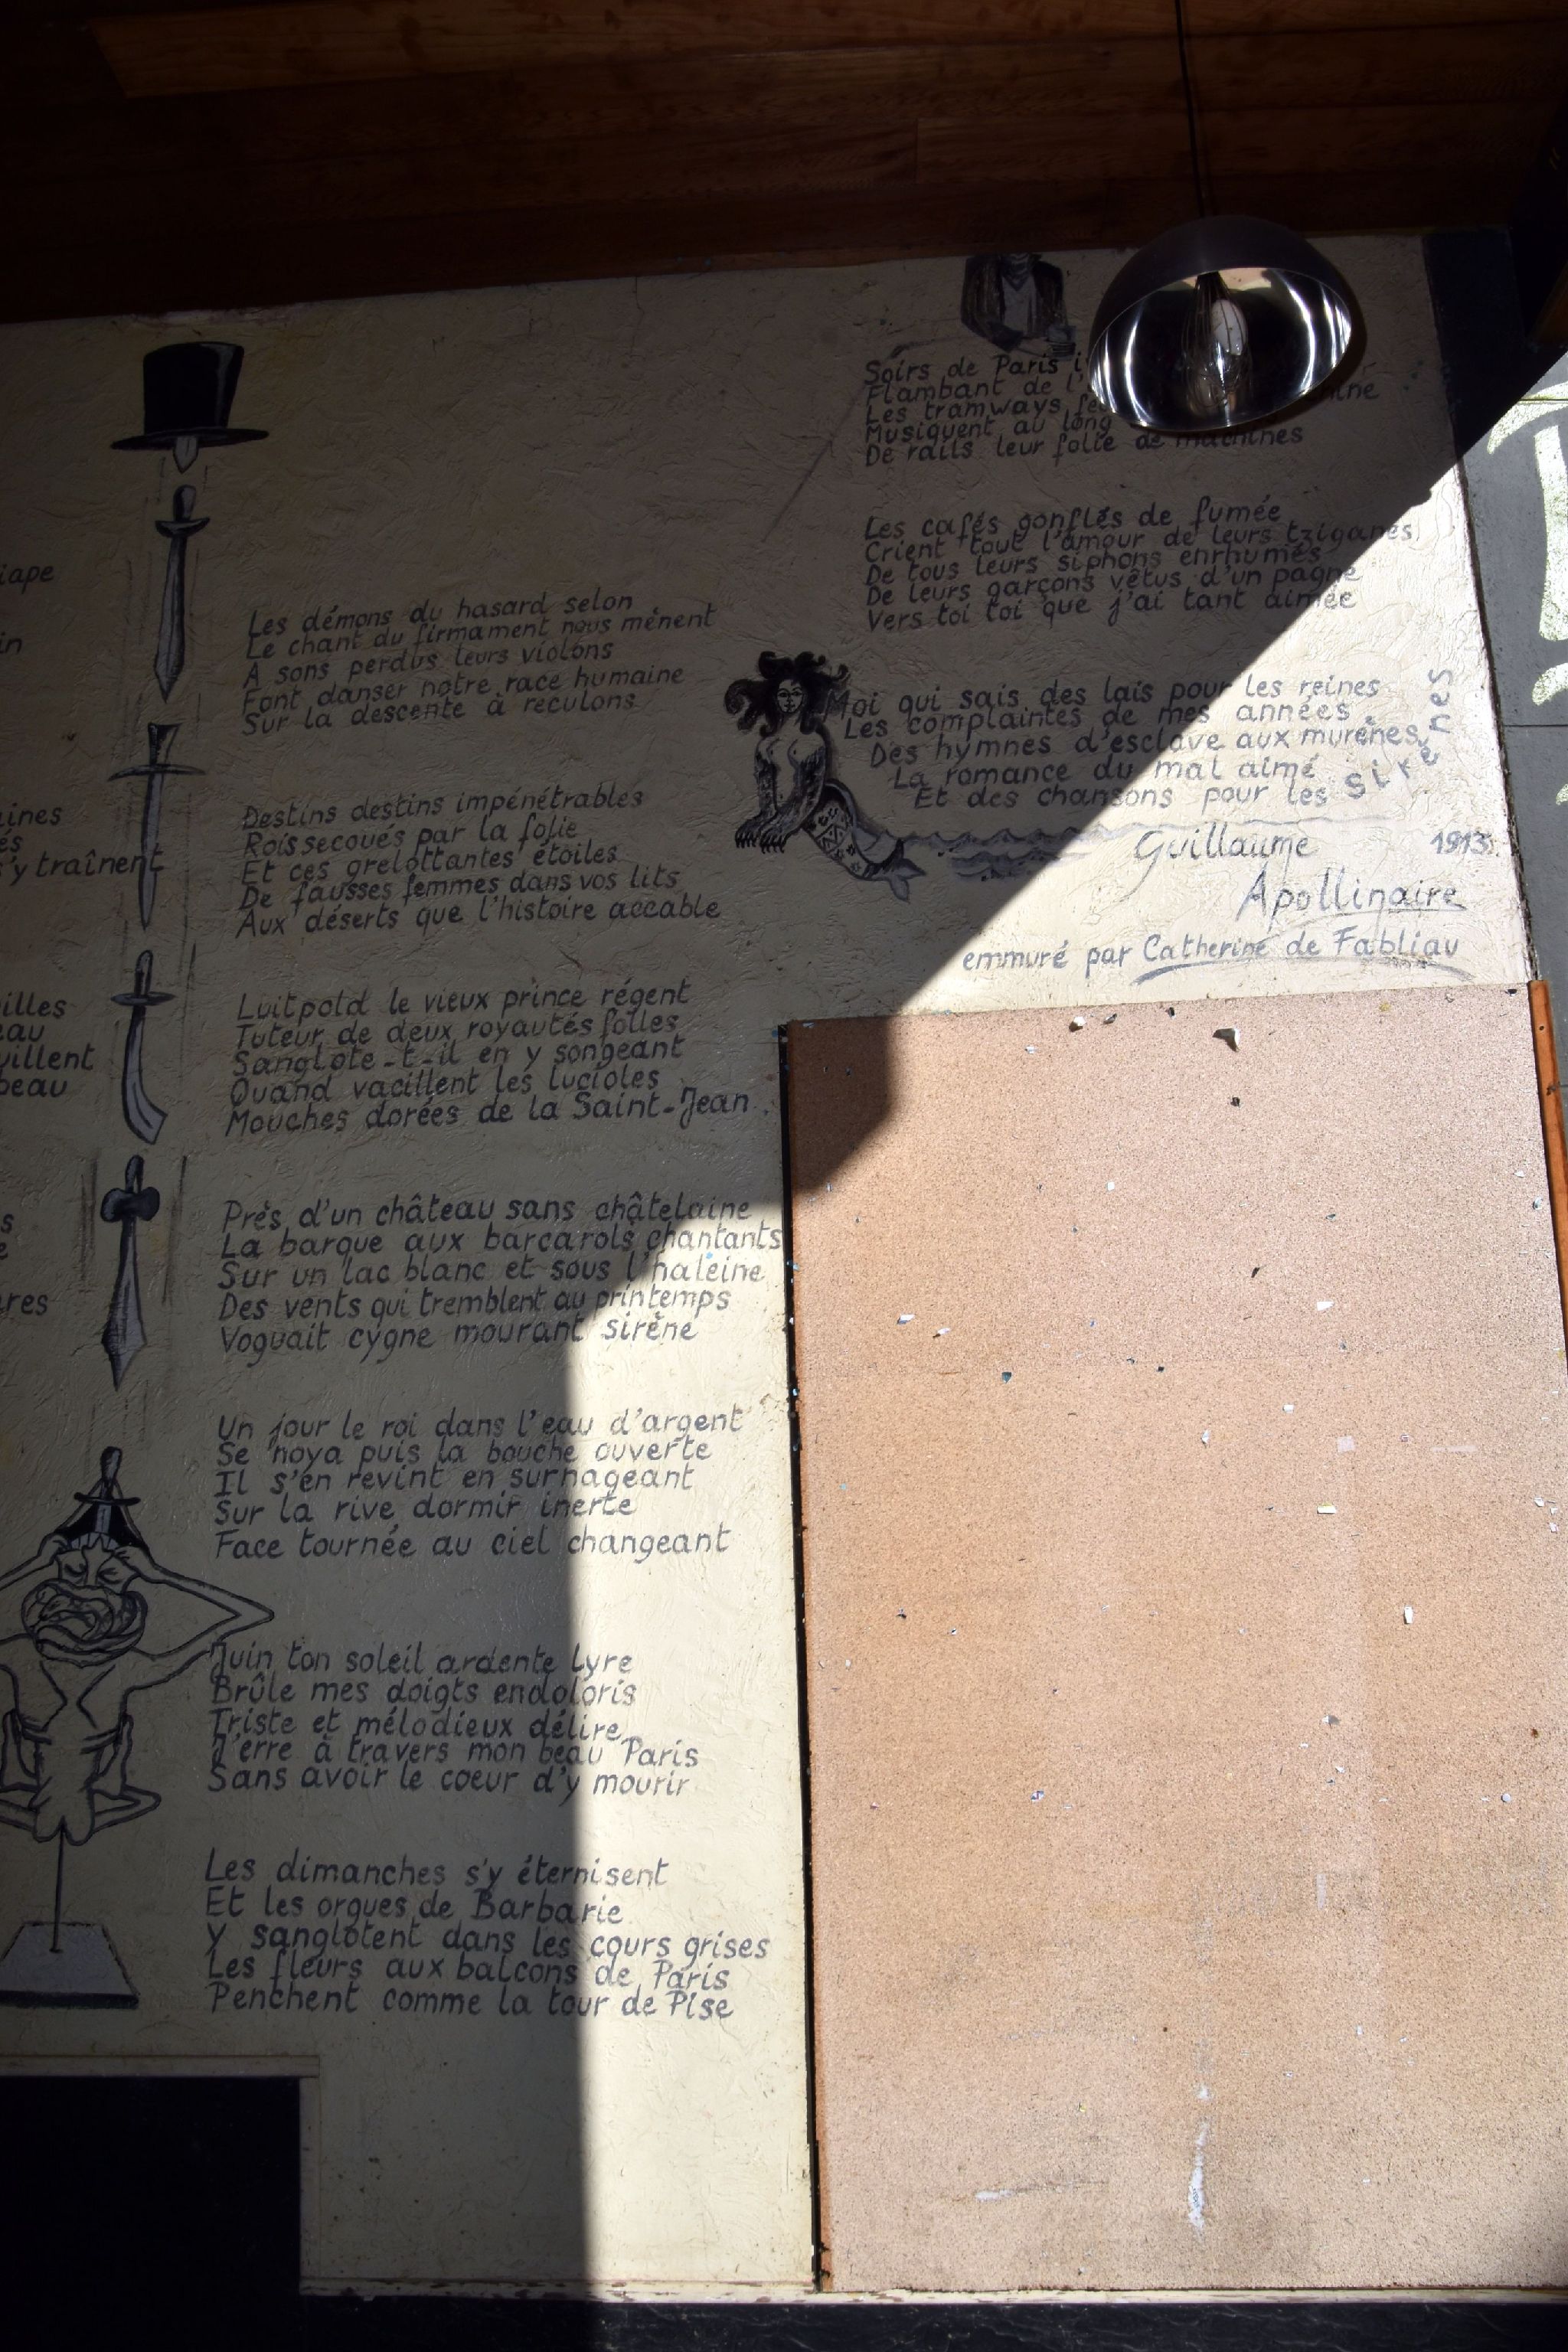 iape
in
aines
és
s'y traînent
illes
eau
uillent
beau
s
e
res
Les démons du hasard selon
Le chant du firmament nous mènent
A sons perdus leurs violons
Font danser notre race humaine
Sur la descente à reculons
Destins destins impénétrables
Rois secoués par la folie
Et ces grelottantes étoiles
De fausses femmes dans vos lits
Aux déserts que l'histoire accable
Luitpold le vieux prince régent
Tuteur de deux royautés folles
Sanglote-t-il en y songeant
Quand vacillent les lucioles
Mouches dorées de la Saint-Jean
Près d'un château sans châtelaine
La barque aux barcarols chantants
Sur un lac blanc et sous l'haleine
Des vents qui tremblent au printemps
Voguait cygne mourant sirène
Un jour le roi dans l'eau d'argent
Se noya puis la bouche ouverte
Il s'en revint en surnageant
Sur la rive dormir inerte
Face tournée au ciel changeant
Juin ton soleil ardente lyre
Brûle mes doigts endoloris
Triste et mélodieux délire
J'erre à travers mon beau Paris
Sans avoir le coeur d'y mourir
Les dimanches s'y éternisent
Et les orgues de Barbarie
Y sanglotent dans les cours grises
Les fleurs aux balcons de Paris
Penchent comme la tour de Pise
Soirs de Paris
Flambant de l'
Les tramways
Musiquent au long
De rails leur folie de machines
Les cafés gonflés de fumée
Crient tout l'amour de leurs tziganes
De tous leurs siphons enrhumés
De leurs garçons vêtus d'un pagne
Vers toi toi que j'ai tant aimée
Moi qui sais des lais pour les reines
Les complaintes de mes années
Des hymnes d'esclave aux murènes
La romance du mal aimé
Et des chansons pour les sirènes
Guillaume 1913
Apollinaire
emmuré par Catherine de Fabliau